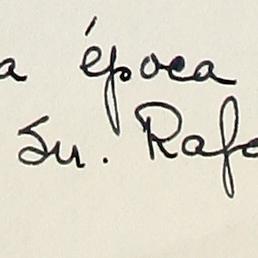 a época
Su. Rafa